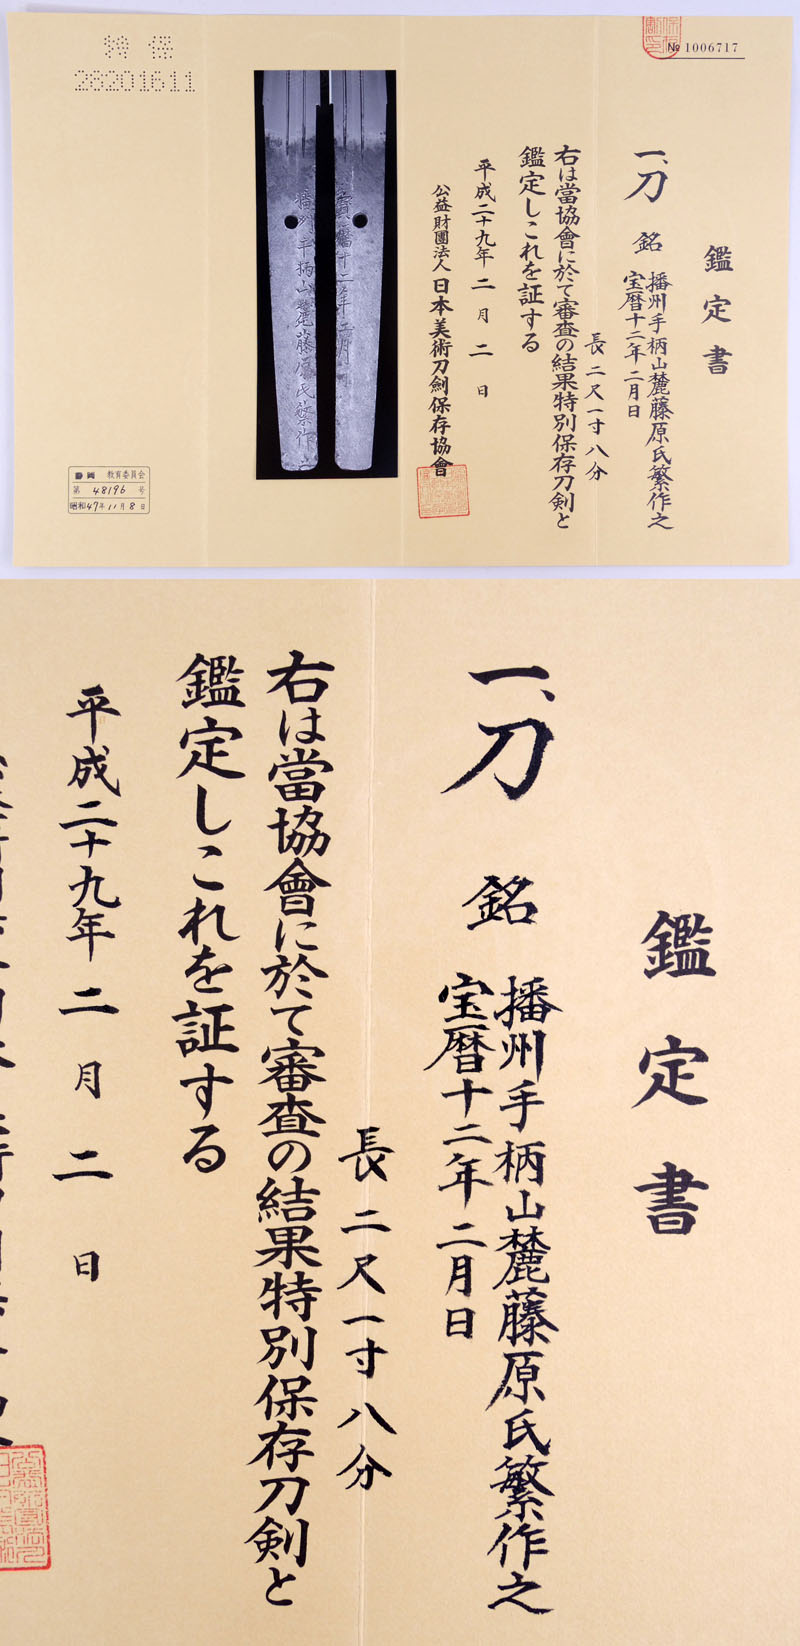 № 1006717
鑑定書
一、刀 銘 播州手柄山麓藤原氏繁作之
宝暦十二年二月日
長二尺一寸八分
右は當協會に於て審査の結果特別保存刀剣と
鑑定しこれを証する
平成二十九年二月二日
公益財團法人日本美術刀劍保存協會
寶暦十二年二月日
播州手柄山麓藤原氏繁作之
特保
28201611
静岡 教育委員会
第 48196 号
昭和47年11月8日
鑑定書
一、刀 銘 播州手柄山麓藤原氏繁作之
宝暦十二年二月日
長二尺一寸八分
右は當協會に於て審査の結果特別保存刀剣と
鑑定しこれを証する
平成二十九年二月二日